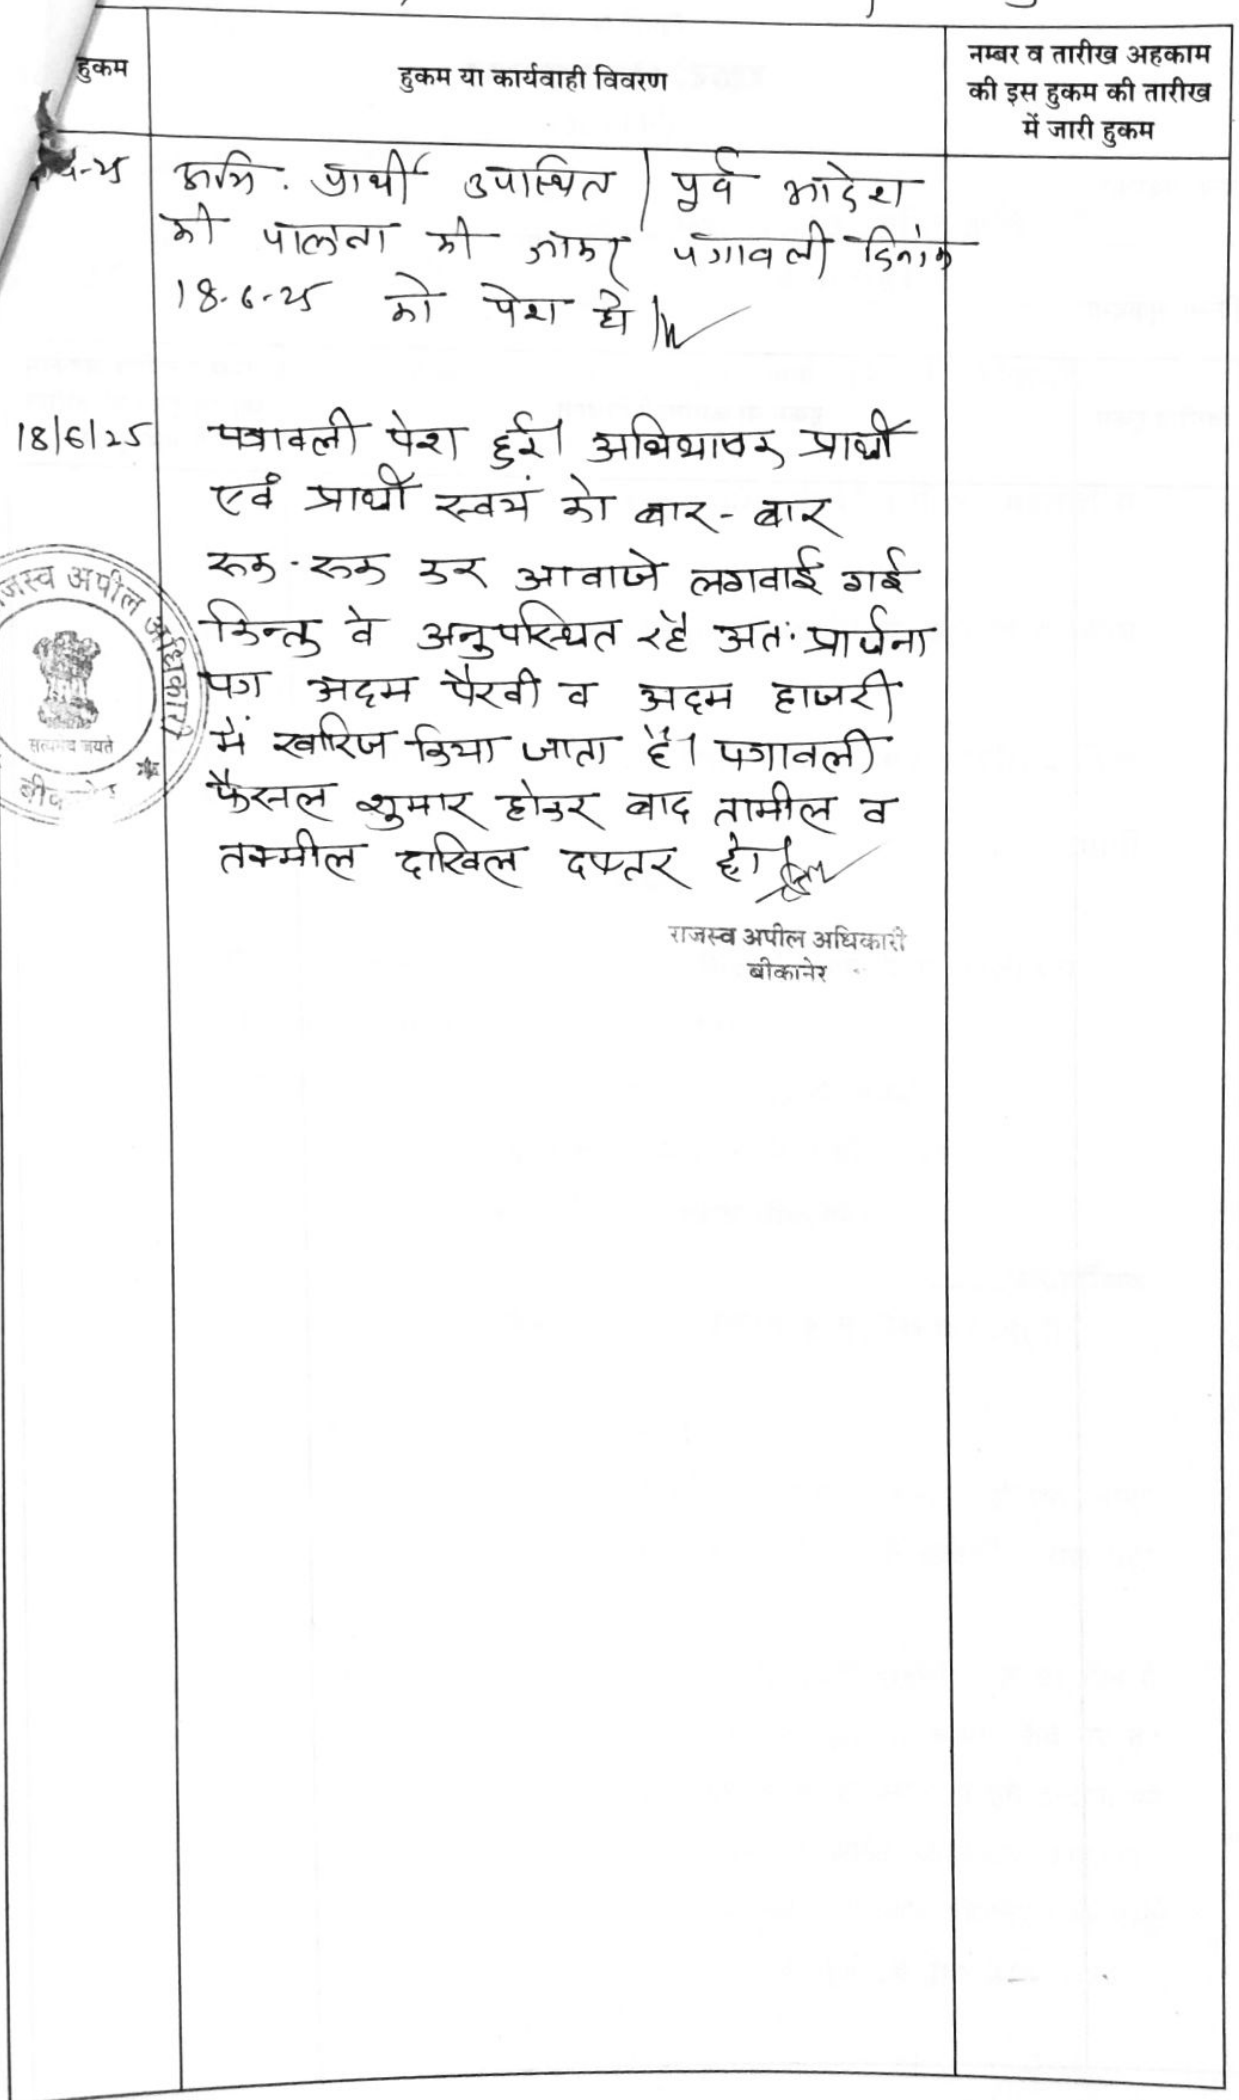 हुकम
हुकम या कार्यवाही विवरण
नम्बर व तारीख अहकाम
की इस हुकम की तारीख
में जारी हुकम
अभि. प्रार्थी उपस्थित। पूर्व आदेश
की पालना की जाकर पत्रावली दिनांक
18-6-25 को पेश हो।
18/6/25
पत्रावली पेश हुई। अभिभाषक प्रार्थी
एवं प्रार्थी स्वयं को बार-बार
रूक-रूक कर आवाजे लगवाई गई
किन्तु वे अनुपस्थित रहे अतः प्रार्थना
पत्र अदम पैरवी व अदम हाजरी
में खारिज किया जाता है। पत्रावली
फैसल शुमार होकर बाद तामील व
तकमील दाखिल दफ्तर हो।
राजस्व अपील अधिकारी
बीकानेर
जस्व अपील अधिकारी
सत्यमेव जयते